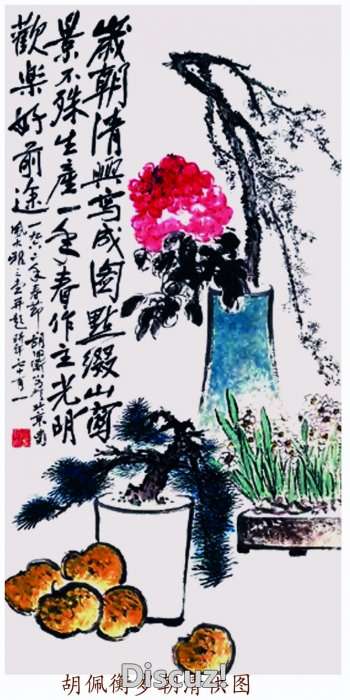 歲朝清興寫成圖點綴山窗
景不殊生產一年春作主光陰
歡樂好前途 一九六二年春節胡佩衡寫於北京
并題時年七十有一
胡佩衡岁朝清供图
Discuz!